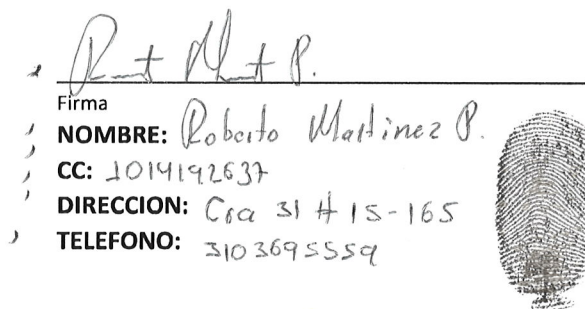 Firma
NOMBRE: Roberto Martinez P.
CC: 1014192637
DIRECCION: Cra 31 # 15-165
TELEFONO: 3103695559